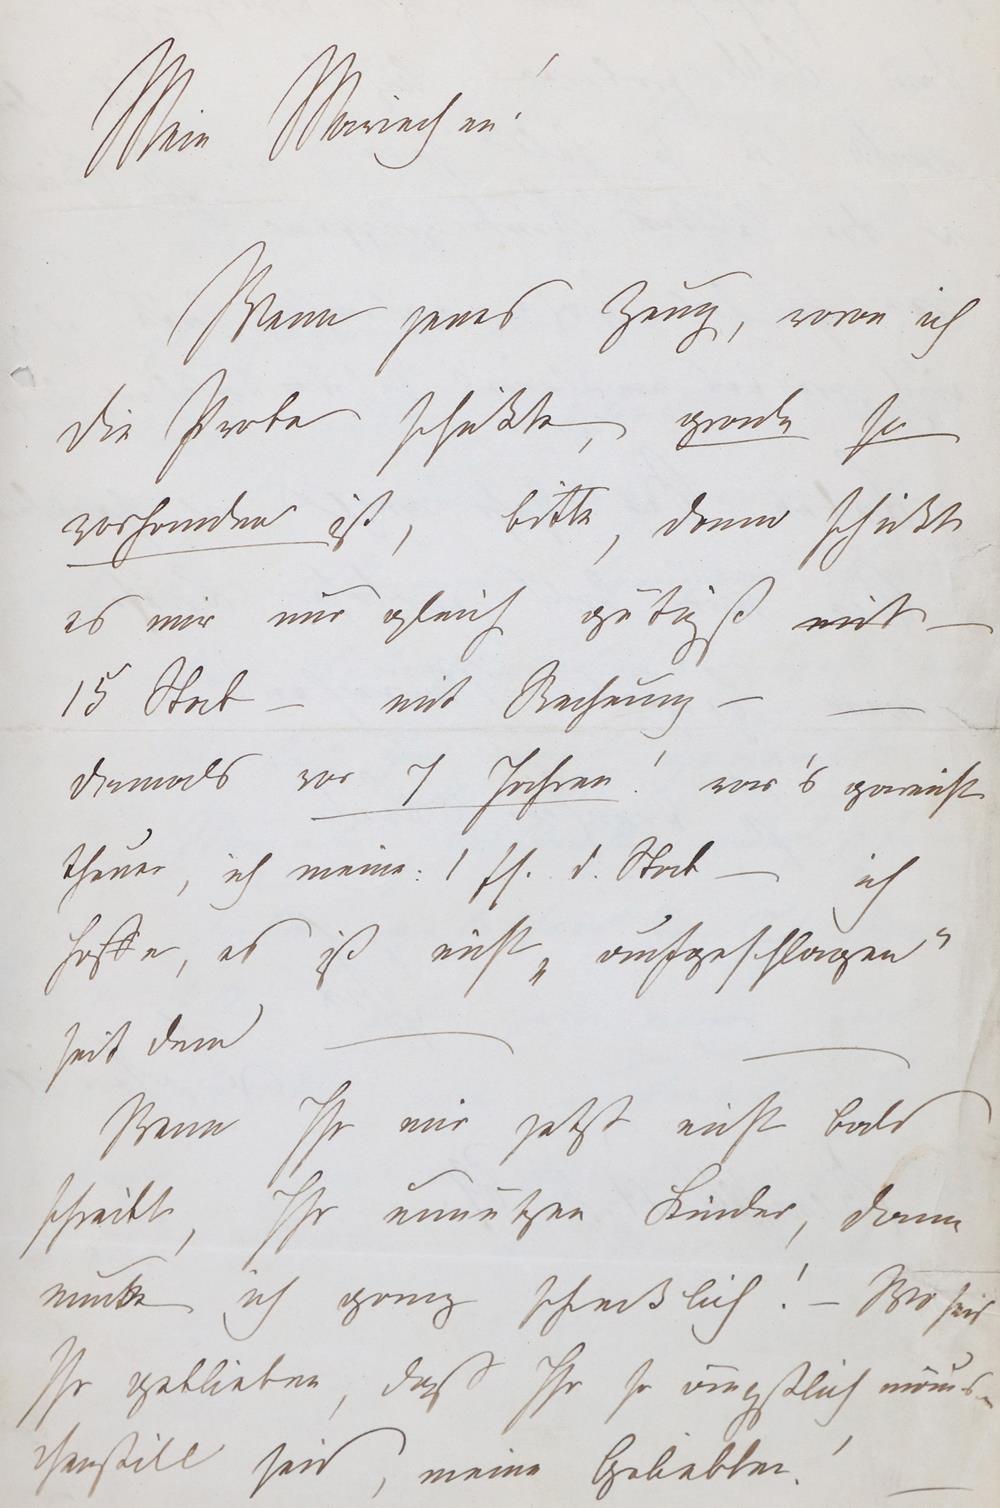 Mein Mariechen!
Wenn jenes Zeug, wovon ich
die Probe schickte, grade so
vorhanden ist, bitte, dann schickt
es mir nur gleich gütigst mit —
15 Stab — mit Rechnung — —
damals vor 7 Jahren! war's garnicht
theuer, ich meine: 1 fl. d. Stab — ich
hoffe, es ist nicht „aufgeschlagen“
seit dem — —
Wenn Ihr mir jetzt nicht bald
schreibt, Ihr unnützen Kinder, dann
mucke ich ganz schrecklich! — Wo seid
Ihr geblieben, daß Ihr so ängstlich mäus-
chenstill seid, meine Geliebten! —